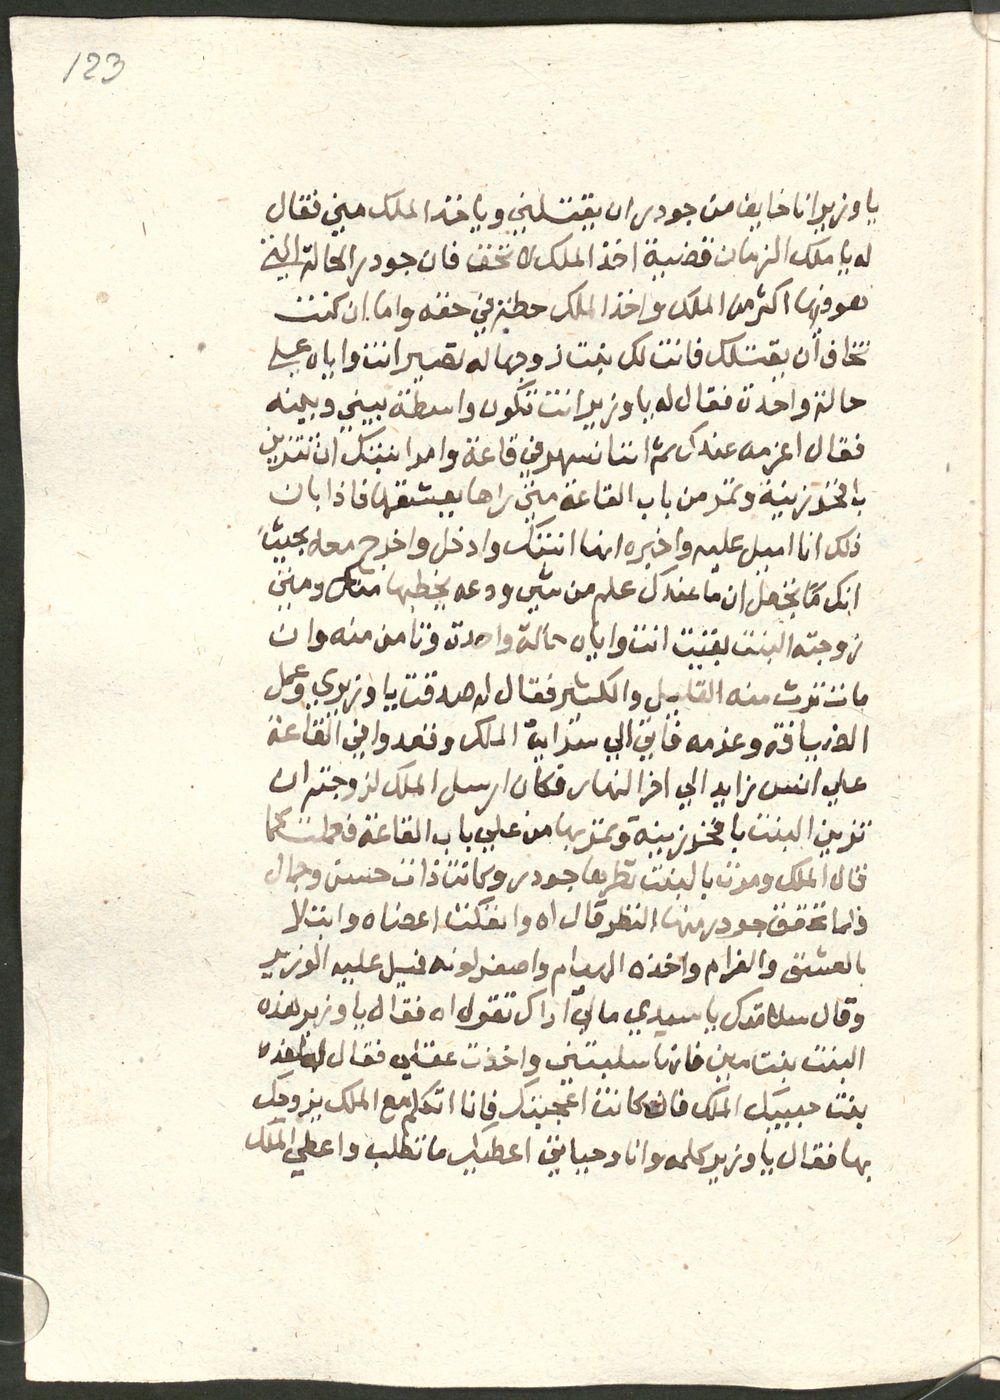 123
يا وزير انا خايف من جودر ان يقتلني وياخذ الملك مني فقال
له يا ملك الزمان قضية اخذ الملك لا تخف فان جودر الحالة التي
هو فيها اكثر من الملك واخذ الملك حطة في حقه واما ان كنت
تخاف ان يقتلك فانت لك بنت زوجها له تصير انت واياه علي
حالة واحدة فقال له يا وزير انت تكون واسطة بيني وبينه
فقال اعزمه عندك ثم اننا نسهر في قاعة وامر ابنتك ان تتزين
بافخر زينة وتمر من باب القاعة متي راها يعشقها فاذا بان
ذلك انا اميل عليه واخبره انها ابنتك وادخل واخرج معه بحيث
انك كما يحصل ان ما عندك علم من شي ودعه يخطبها منك ومتي
زوجته البنت بقيت انت واياه حالة واحدة وتامن منه وان
مات ترث منه القليل والكثير فقال له صدقت يا وزيري وعمل
الضيافة وعزمه فاتي الي سراية الملك وقعدوا في القاعة
علي انس زايد الي اخر النهار فكان ارسل الملك لزوجته ان
تزين البنت بافخر زينة وتمر بها من علي باب القاعة فعملت كما
قال الملك ومرت بالبنت نظرها جودر وكانت ذات حسن وجمال
فلما تحقق جودر منها النظر قال اه وانفكت اعضاه وابتلا
بالعشق والغرام واخذه الهيام واصفر لونه فميل عليه الوزير
وقال سلامتك يا سيدي مالي اراك تقول اه فقال يا وزير هذه
البنت بنت مين فانها سلبتني واخذت عقلي فقال له هذه
بنت حبيبك الملك فان كانت اعجبتك فانا اتكلم مع الملك يزوجك
بها فقال يا وزير كلمه وانا وحياتي اعطيك ما تطلب واعطي الملك